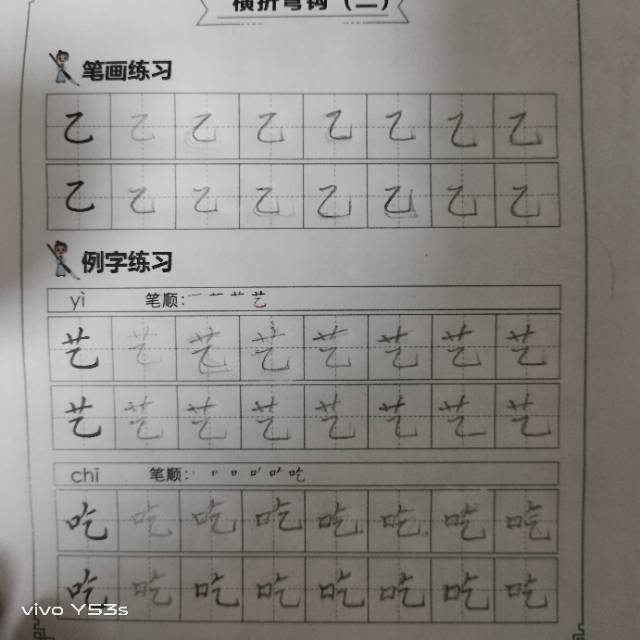 横折弯钩(二)
笔画练习
乙 乙 乙 乙 乙 乙 乙 乙
乙 乙 乙 乙 乙 乙 乙 乙
例字练习
yì 笔顺: 一 十 艹 艺
艺 艺 艺 艺 艺 艺 艺 艺
艺 艺 艺 艺 艺 艺 艺 艺
chī 笔顺:
吃 吃 吃 吃 吃 吃 吃 吃
吃 吃 吃 吃 吃 吃 吃 吃
vivo Y53s